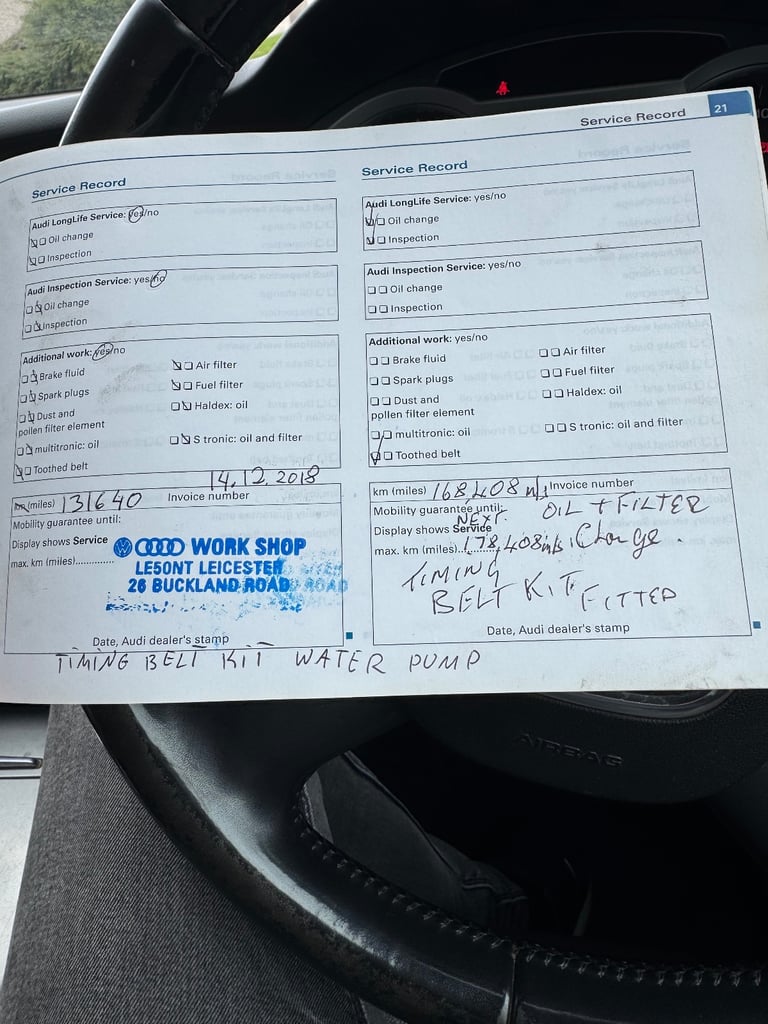 Service Record 21
Service Record
Audi LongLife Service: yes/no
Oil change
Inspection
Audi Inspection Service: yes/no
Oil change
Inspection
Additional work: yes/no
Brake fluid
Air filter
Spark plugs
Fuel filter
Dust and
pollen filter element
Haldex: oil
multitronic: oil
S tronic: oil and filter
Toothed belt
14.12.2018
km (miles) 131640 Invoice number
Mobility guarantee until:
Display shows Service
max. km (miles)..............
WORK SHOP
LE50NT LEICESTER
26 BUCKLAND ROAD
Date, Audi dealer's stamp
TIMING BELT KIT WATER PUMP
Service Record
Audi LongLife Service: yes/no
Oil change
Inspection
Audi Inspection Service: yes/no
Oil change
Inspection
Additional work: yes/no
Brake fluid
Air filter
Spark plugs
Fuel filter
Dust and
pollen filter element
Haldex: oil
multitronic: oil
S tronic: oil and filter
Toothed belt
km (miles) 168,408 m/s Invoice number
Mobility guarantee until: OIL + FILTER
NEXT
Display shows Service
max. km (miles) 178,408 m/s Change.
TIMING
BELT KIT FITTED
Date, Audi dealer's stamp
AIRBAG